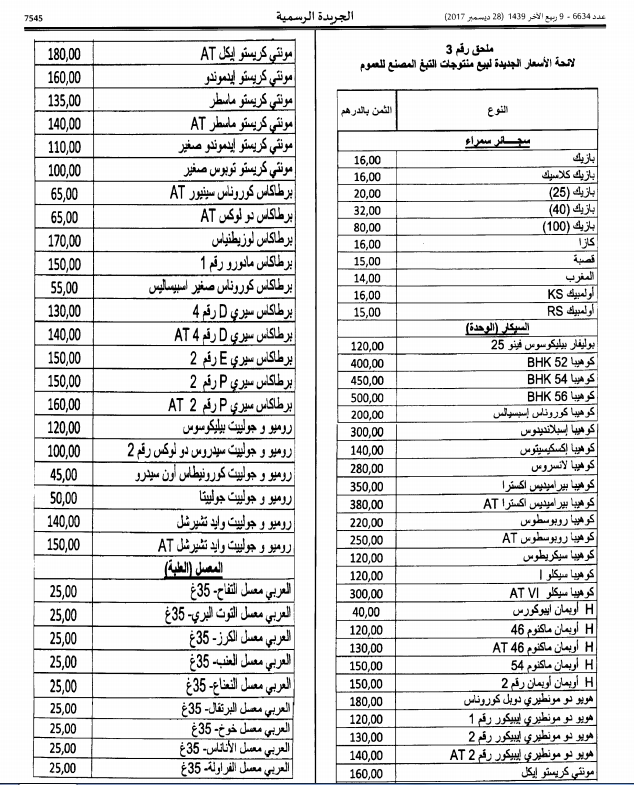 عدد 6634 - 9 ربيع الآخر 1439 (28 ديسمبر 2017)
الجريدة الرسمية
7545
ملحق رقم 3
لائحة الأسعار الجديدة لبيع منتوجات التبغ المصنع للعموم
النوع الثمن بالدرهم
سجائر سمراء
بازيك 16,00
بازيك كلاسيك 16,00
بازيك (25) 20,00
بازيك (40) 32,00
بازيك (100) 80,00
كازا 16,00
قصبة 15,00
المغرب 14,00
أولمبيك KS 16,00
أولمبيك RS 15,00
السيكار (الوحدة)
بوليفار بيليكوسوس فينو 25 120,00
كوهيبا BHK 52 400,00
كوهيبا BHK 54 450,00
كوهيبا BHK 56 500,00
كوهيبا كوروناس إسبسيالس 200,00
كوهيبا إسبلانديدوس 300,00
كوهيبا إكسكيسيتوس 140,00
كوهيبا لانسروس 280,00
كوهيبا بيراميديس اكسترا 350,00
كوهيبا بيراميديس اكسترا AT 380,00
كوهيبا روبوسطوس 220,00
كوهيبا روبوسطوس AT 250,00
كوهيبا سيكريطوس 120,00
كوهيبا سيكلو I 120,00
كوهيبا سيكلو AT VI 300,00
H أوبمان ايبوكورس 40,00
H أوبمان ماكنوم 46 120,00
H أوبمان ماكنوم AT 46 130,00
H أوبمان ماكنوم 54 150,00
H أوبمان أوبمان رقم 2 150,00
هويو دو مونطيري دوبل كوروناس 180,00
هويو دو مونطيري إيبيكور رقم 1 120,00
هويو دو مونطيري إيبيكور رقم 2 130,00
هويو دو مونطيري إيبيكور رقم 2 AT 140,00
مونتي كريستو إيكل 160,00
مونتي كريستو إيكل AT 180,00
مونتي كريستو إيدموندو 160,00
مونتي كريستو ماسطر 135,00
مونتي كريستو ماسطر AT 140,00
مونتي كريستو إيدموندو صغير 110,00
مونتي كريستو توبوس صغير 100,00
برطاكاس كوروناس سينيور AT 65,00
برطاكاس دو لوكس AT 65,00
برطاكاس لوزيطنياس 170,00
برطاكاس مادورو رقم 1 150,00
برطاكاس كوروناس صغير اسبيساليس 55,00
برطاكاس سيري D رقم 4 130,00
برطاكاس سيري D رقم 4 AT 140,00
برطاكاس سيري E رقم 2 150,00
برطاكاس سيري P رقم 2 150,00
برطاكاس سيري P رقم 2 AT 160,00
روميو و جولييت بيليكوسوس 120,00
روميو و جولييت سيدروس دو لوكس رقم 2 100,00
روميو و جولييت كورونيطاس أون سيدرو 45,00
روميو و جولييت جولييتا 50,00
روميو و جولييت وايد تشيرشل 140,00
روميو و جولييت وايد تشيرشل AT 150,00
المعسل (العلبة)
العربي معسل التفاح- 35غ 25,00
العربي معسل التوت البري- 35غ 25,00
العربي معسل الكرز- 35غ 25,00
العربي معسل العنب- 35غ 25,00
العربي معسل النعناع- 35غ 25,00
العربي معسل البرتقال- 35غ 25,00
العربي معسل خوخ- 35غ 25,00
العربي معسل الأناناس- 35غ 25,00
العربي معسل الفراولة- 35غ 25,00